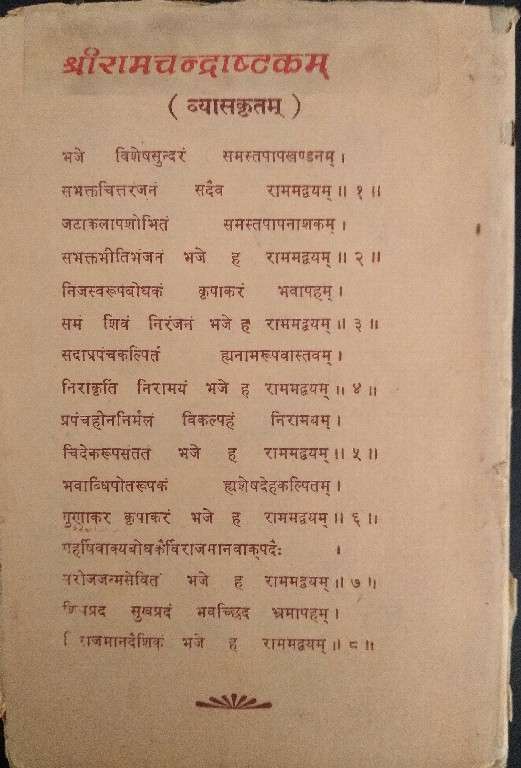 श्रीरामचन्द्राष्टकम्
( व्यासकृतम् )
भजे विशेषसुन्दरं समस्तपापखण्डनम् ।
सभक्तचित्तरजनं सदैव राममद्वयम् ॥ १ ॥
जटाकलापशोभितं समस्तपापनाशकम् ।
सभक्तभीतिभंजनं भजे ह राममद्वयम् ॥ २ ॥
निजस्वरूपबोधकं कृपाकरं भवापहम् ।
समं शिवं निरंजनं भजे ह राममद्वयम् ॥ ३ ॥
सदाप्रपंचकल्पितं ह्यनामरूपवास्तवम् ।
निराकृतिं निरामयं भजे ह राममद्वयम् ॥ ४ ॥
प्रपंचहीननिर्मलं विकल्पहं निरामयम् ।
चिदेकरूपसंतत भजे ह राममद्वयम् ॥ ५ ॥
भवाब्धिपोतरूपकं ह्यशेषदेहकल्पितम् ।
गुणाकर कृपाकरं भजे ह राममद्वयम् ॥ ६ ॥
महर्षिवाक्यबोधकैर्विराजमानवाक्पदैः ।
सरोजजन्मसेवितं भजे ह राममद्वयम् ॥ ७ ॥
शिवप्रद सुखप्रदं भवच्छिद भ्रमापहम् ।
विराजमानदैशिकं भजे ह राममद्वयम् ॥ ८ ॥